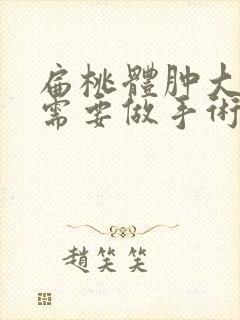 扁桃體肿大
需要做手術
趙笑笑